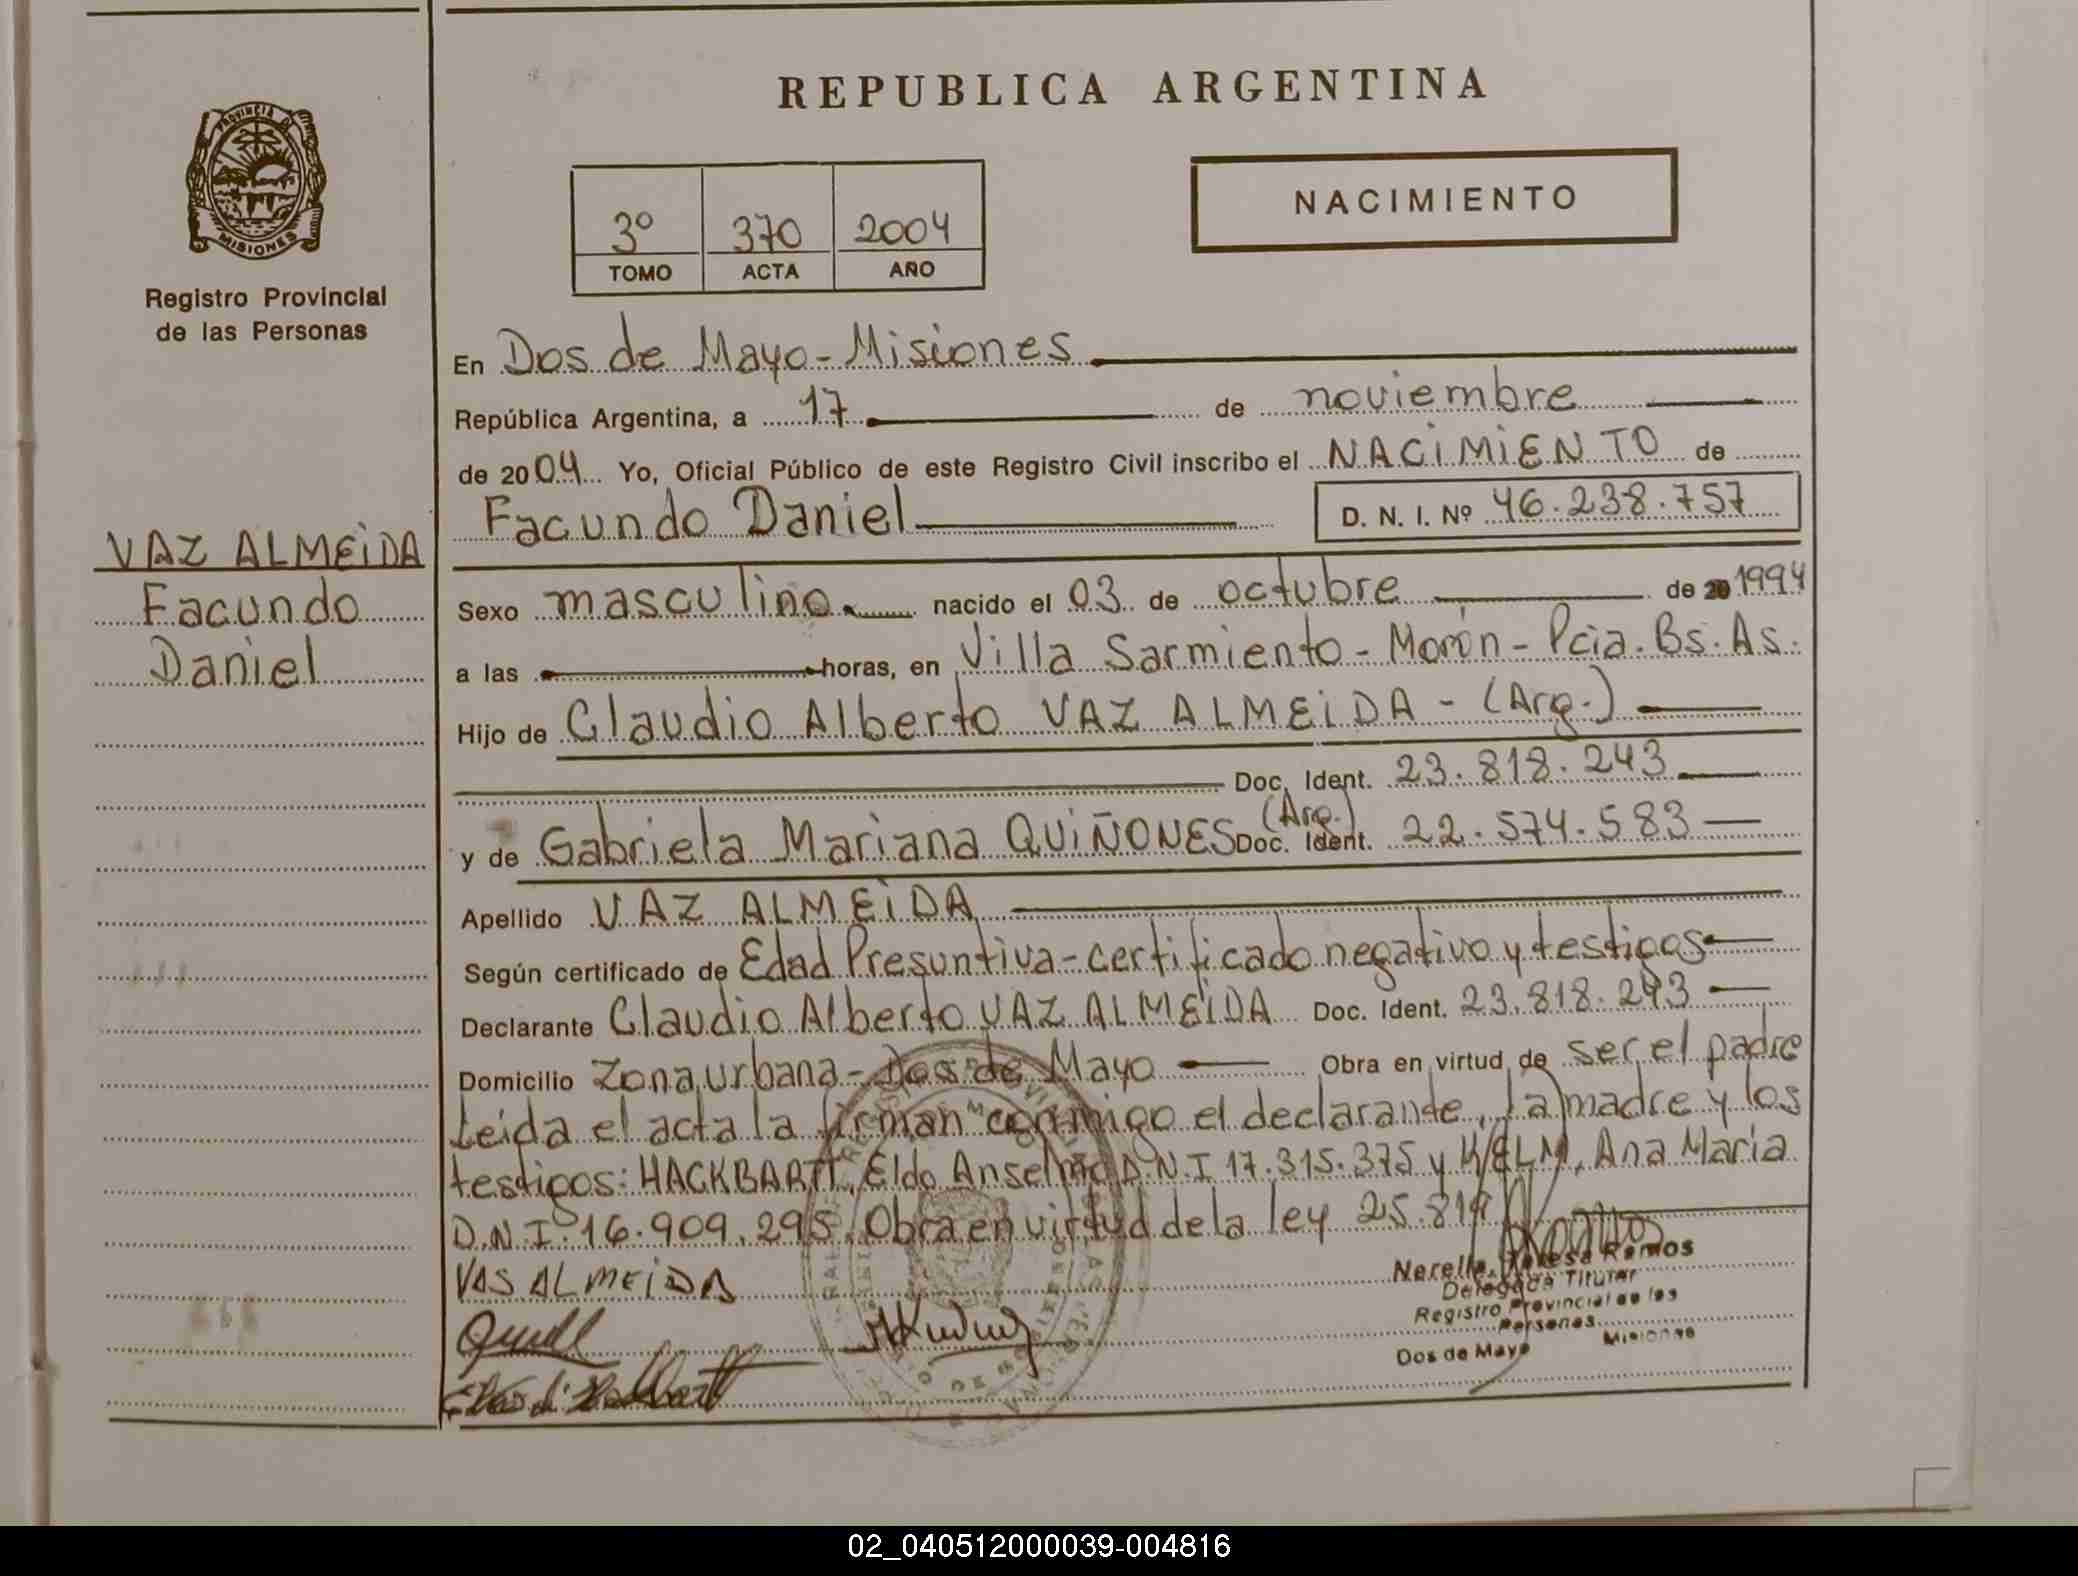 REPUBLICA ARGENTINA
PROVINCIA D
MISIONES
Registro Provincial
de las Personas
3º 370 2004
TOMO ACTA AÑO
NACIMIENTO
VAZ ALMEiDA
Facundo
Daniel
En Dos de Mayo - Misiones
República Argentina, a 17 de noviembre
de 2004 Yo, Oficial Público de este Registro Civil inscribo el NACiMiENTO de
Facundo Daniel D. N. I. Nº 46.238.757
Sexo masculino nacido el 03 de octubre de 20 1994
a las horas, en Villa Sarmiento - Morón - Pcia. Bs. As.
Hijo de Claudio Alberto VAZ ALMEiDA - (Arg.)
Doc. Ident. 23.818.243
y de Gabriela Mariana QUiÑONES (Arg.) Doc. Ident. 22.574.583
Apellido VAZ ALMEiDA
Según certificado de Edad Presuntiva - certificado negativo y testigos
Declarante Claudio Alberto VAZ ALMEiDA Doc. Ident. 23.818.243
Domicilio Zona urbana - Dos de Mayo Obra en virtud de ser el padre
Leida el acta la firman conmigo el declarante, la madre y los
testigos: HACKBARTT, Eldo Anselmo D.N.I 17.315.375 y KELM, Ana Maria
D.N.I. 16.909.295. Obra en virtud de la ley 25.819
VAS ALMEiDA
Nerella Teresa Ramos
Delegada Titular
Registro Provincial de las
Personas
Dos de Mayo Misiones
02_040512000039-004816